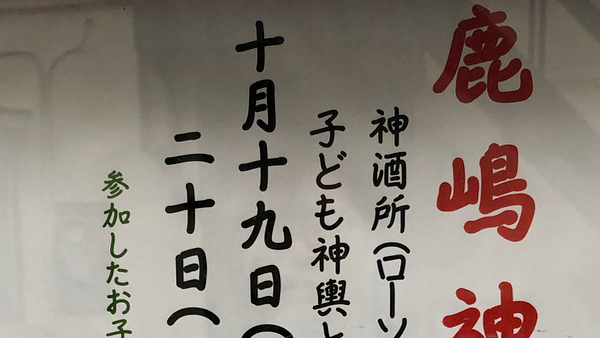 鹿嶋神
神酒所(ローソ
子ども神輿と
十月十九日(
二十日(
参加したお子